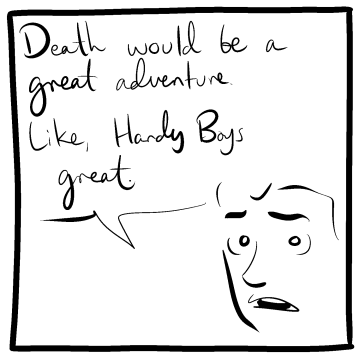 Death would be a
great adventure.
Like, Hardy Boys
great.